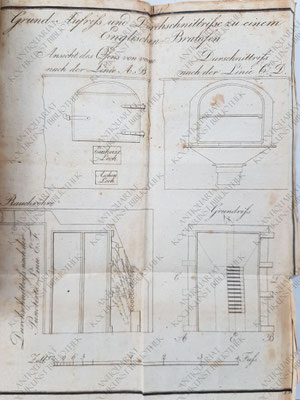 Grund- Aufriß und Durchschnittriße zu einem
Englischen Bratofen
Ansicht des Ofens von vorn
nach der Linie A. B.
Durschnittriß
nach der Linie C. D.
Einheitz
Loch
Aschen
Loch
Rauchröhre
Grundriß
Durchschnittriß nach der
Linie E. F.
A
B
Zoll 12
2 Fuß
ANTIQUARIAT
KOCHKUNST BIBLIOTHEK